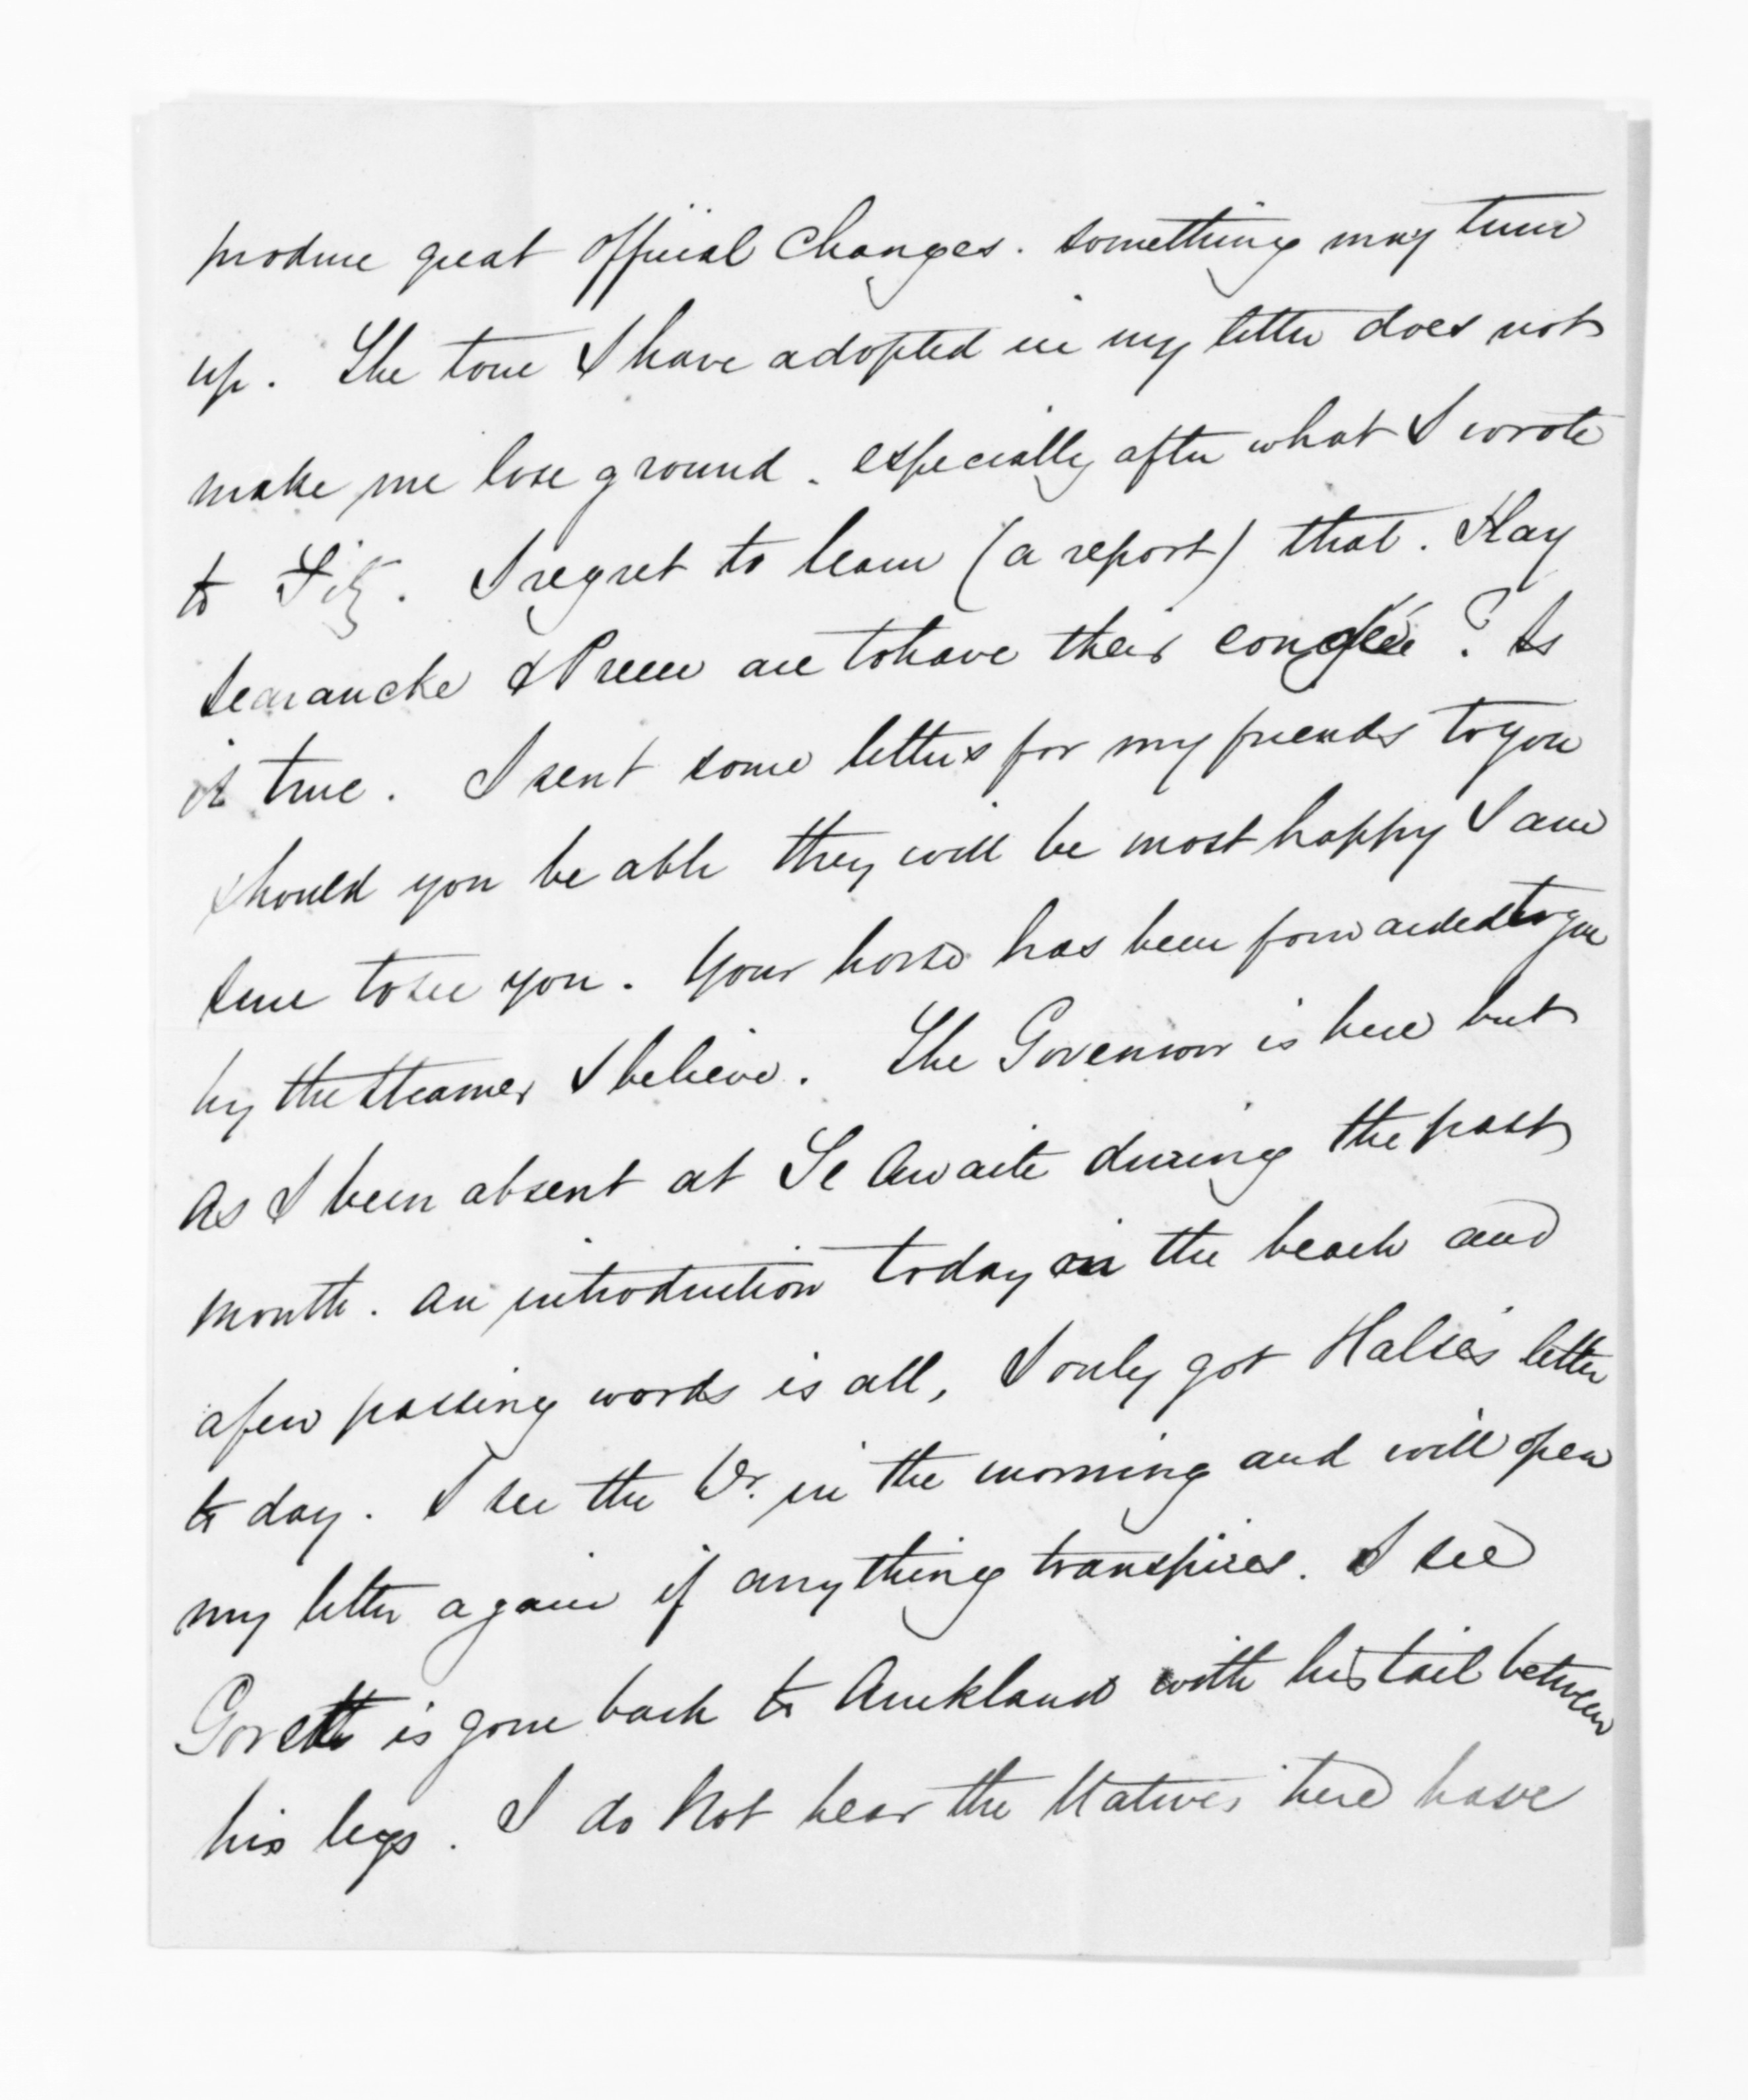 produce great official changes. something may turn
up. The tone I have adopted in my letter does not
make me lose ground. especially after what I wrote
to Fitz. I regret to learn (a report) that. Hay
Searancke & Preece are to have their congée? Is
it true. I sent some letters for my friends to you
should you be able they will be most happy I am
sure to see you. Your horse has been forwarded to you
by the steamer I believe. The Governor is here but
As I been absent at Te Awaite during the past
month. an introduction today on the beach and
a few passing words is all, I only got Halse's letter
to day. I see the Dr. in the morning and will open
my letter again if anything transpires. I see
Govett is gone back to Auckland with his tail between
his legs. I do Not hear the Natives here have